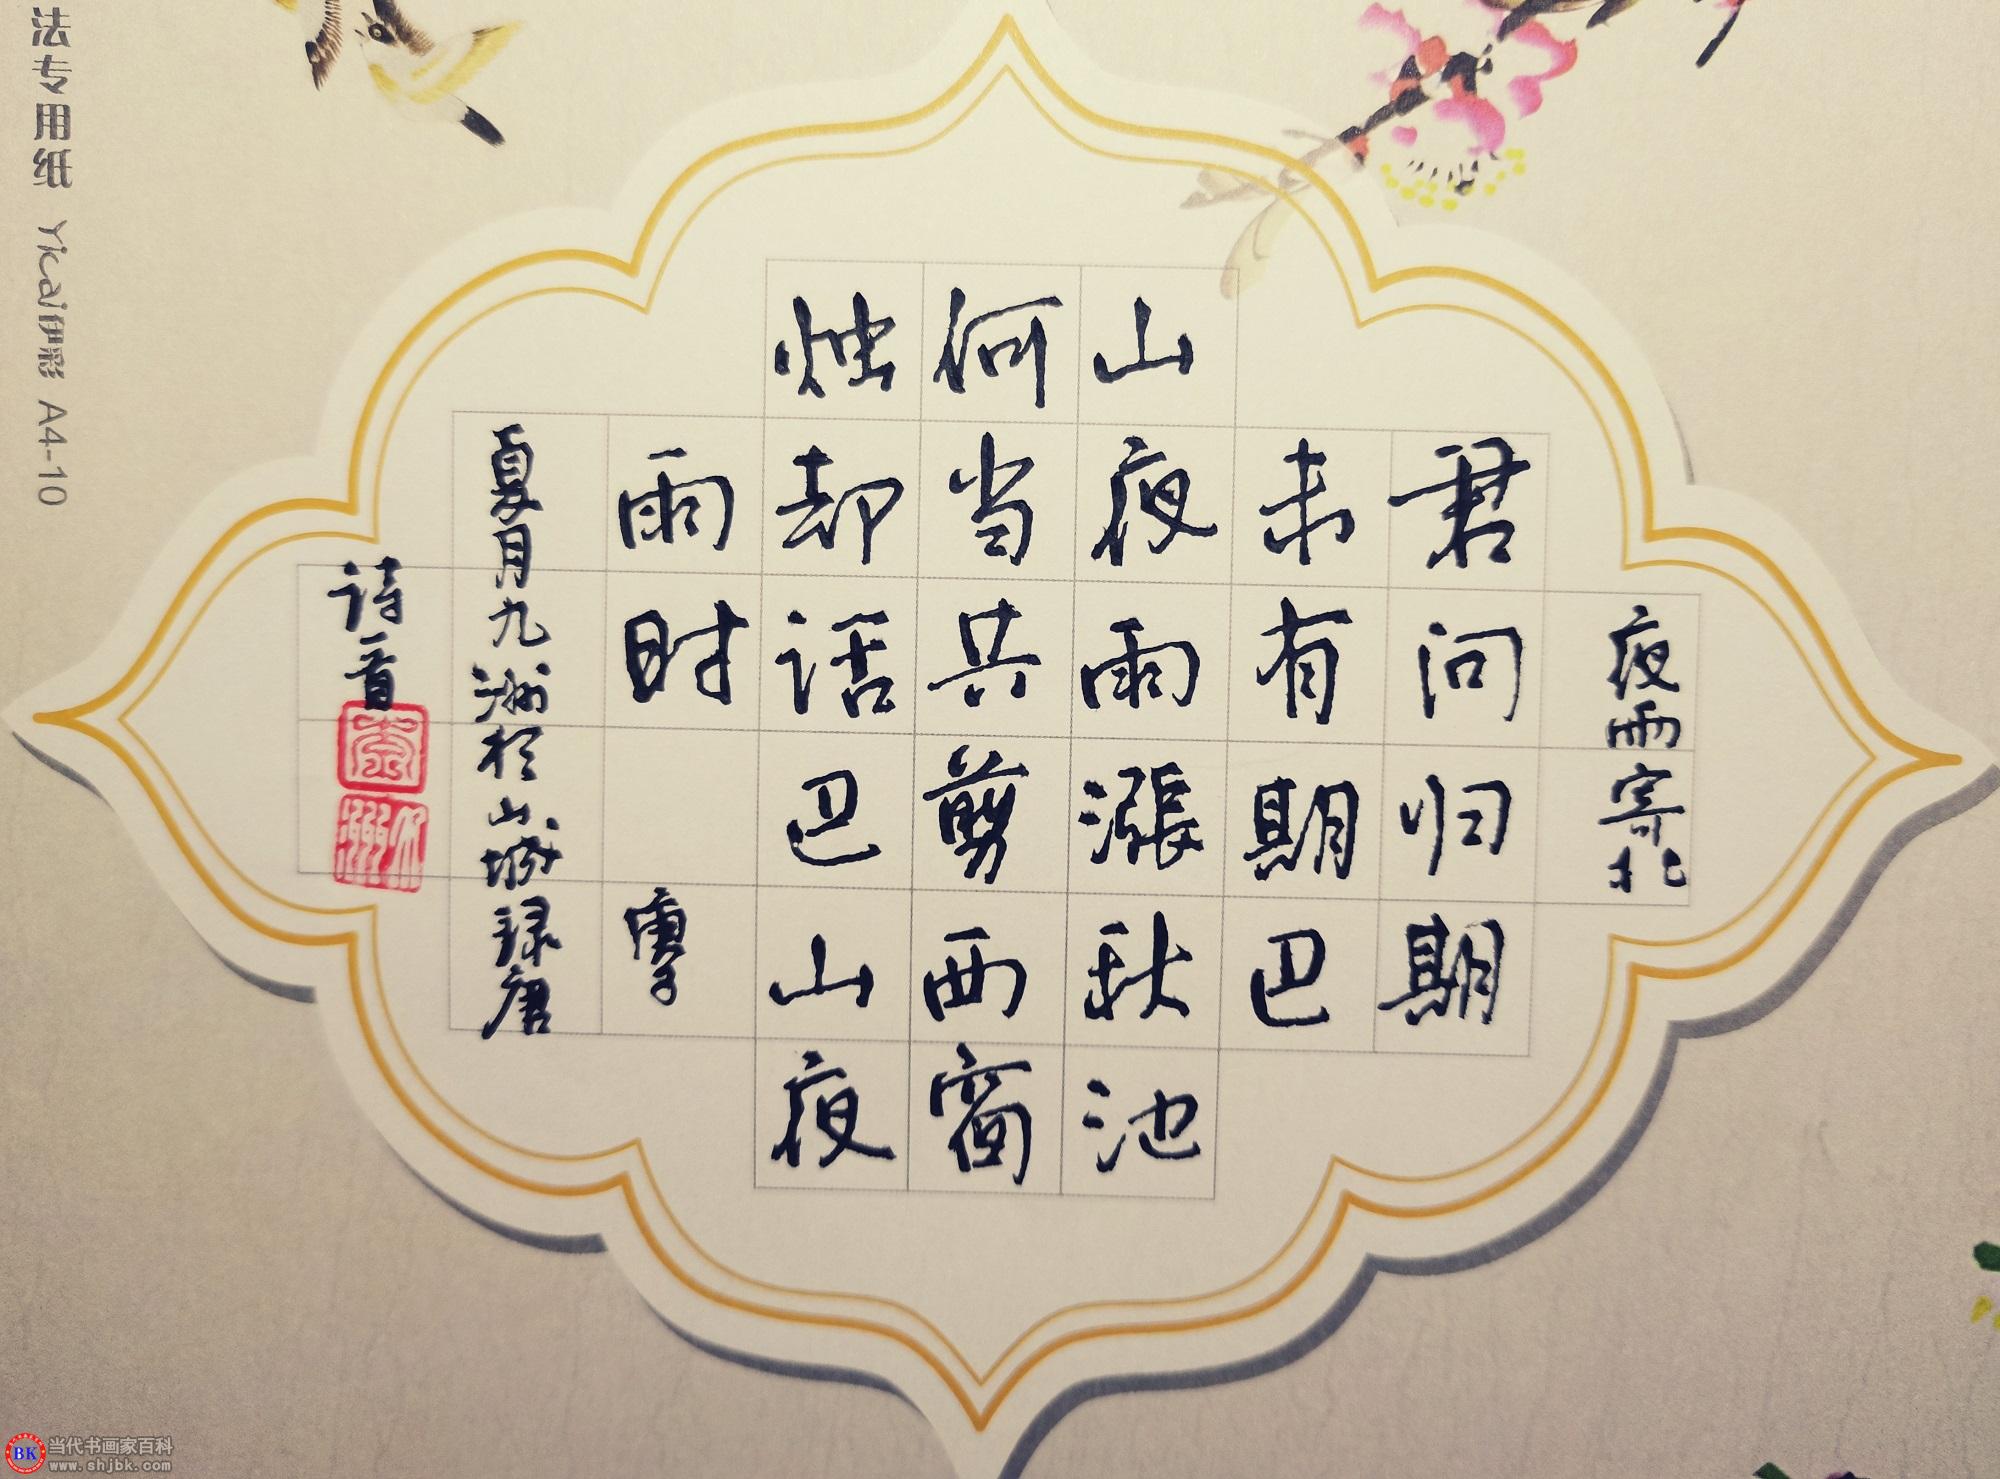 夜雨寄北
君问归期
未有期巴
山夜雨漲秋池
何当共剪西窗
烛却话巴山夜
雨时
庚子
夏月九洲於山城録唐
诗一首
法专用纸 Yicai伊彩 A4-10
BK 当代书画家百科
www.shjbk.com